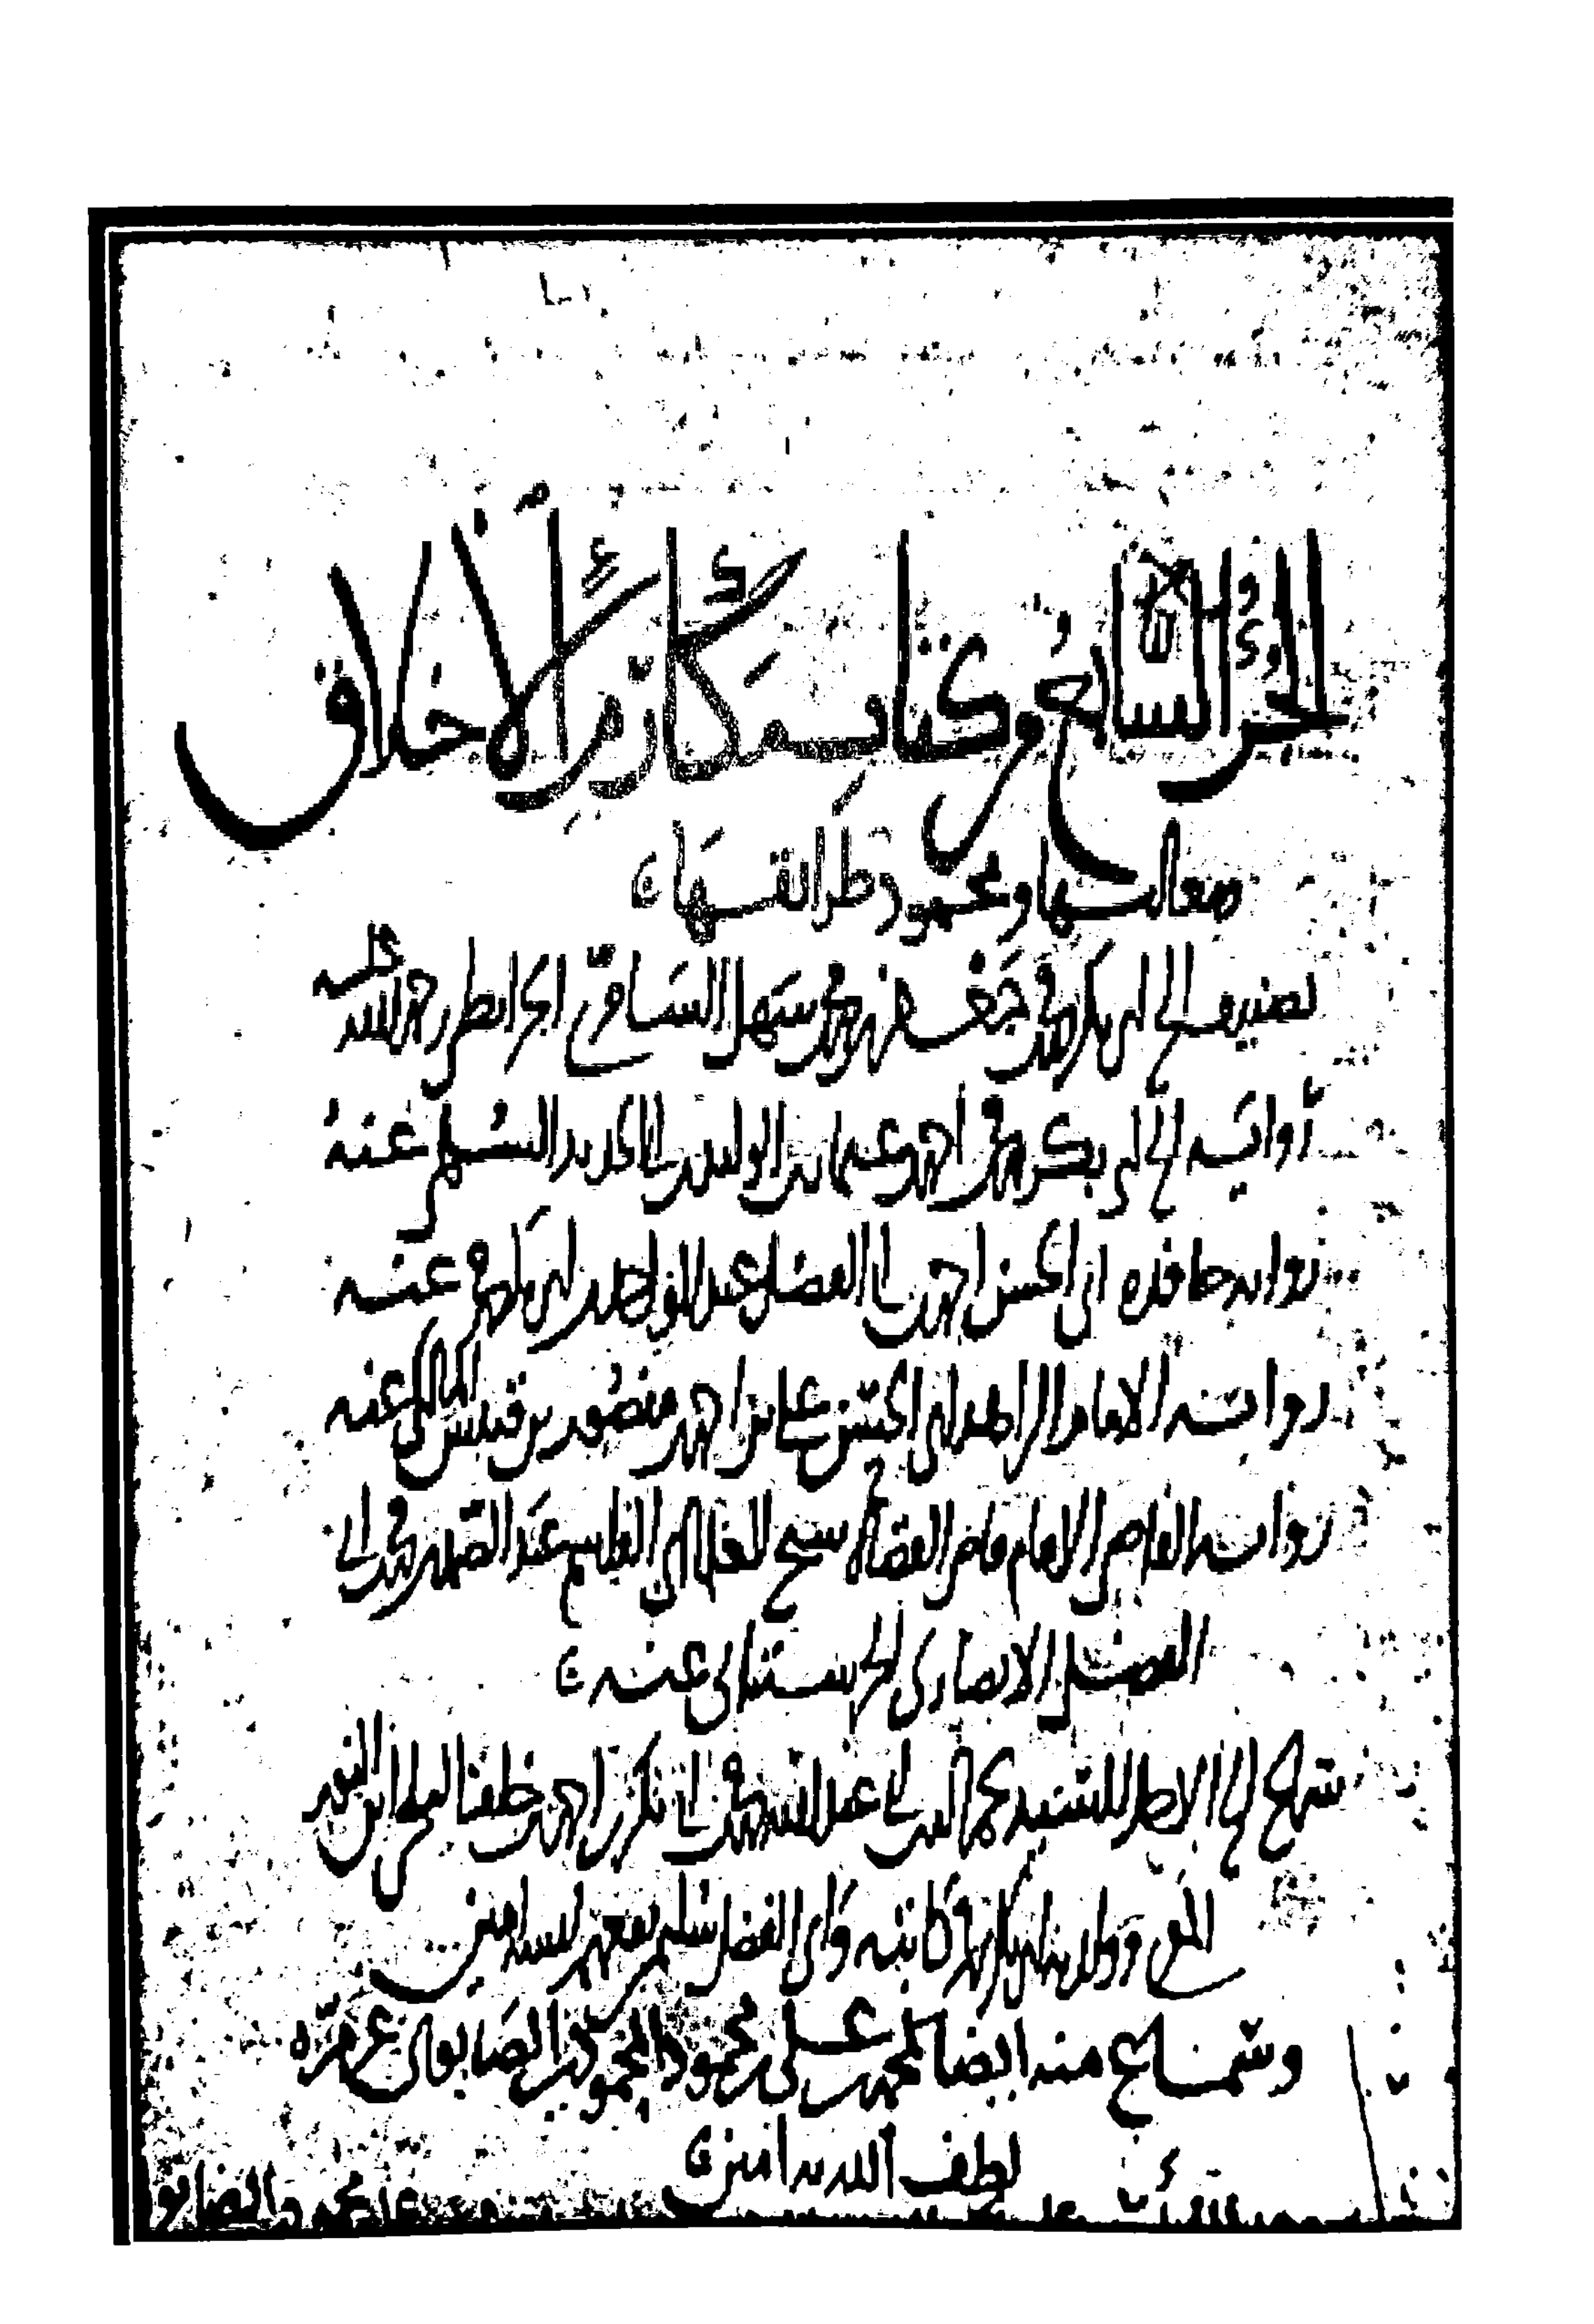 الجزء السابع من كتاب مكارم الأخلاق
ومعاليها ومحمود طرائقها
تصنيف الشيخ أبي بكر محمد بن جعفر بن محمد بن سهل السامري الخرائطي رحمة الله عليه
رواية الشيخ أبي بكر محمد بن أحمد بن عثمان بن الوليد بن أبي الحديد السلمي عنه
رواية حافده أبي الحسن أحمد بن أبي الفضل عبد الواحد بن أبي بكر محمد عنه
رواية الإمام الزاهد أبي الحسن علي بن أحمد بن منصور بن قبيس المالكي عنه
رواية القاضي الإمام قاضي القضاة أبي القاسم عبد الصمد بن محمد بن أبي
الفضل الأنصاري الحرستاني عنه
سماع عبد الله محمد بن أبي بكر بن أحمد بن خلف البلخي ابن النور
البلخي وولديه أبي بكر محمد كاتبه وأبي الفضل سليم نفعهم الله آمين
وسماع منه أيضا لمحمد بن علي بن محمود المحمودي الصابوني
لطف الله به آمين